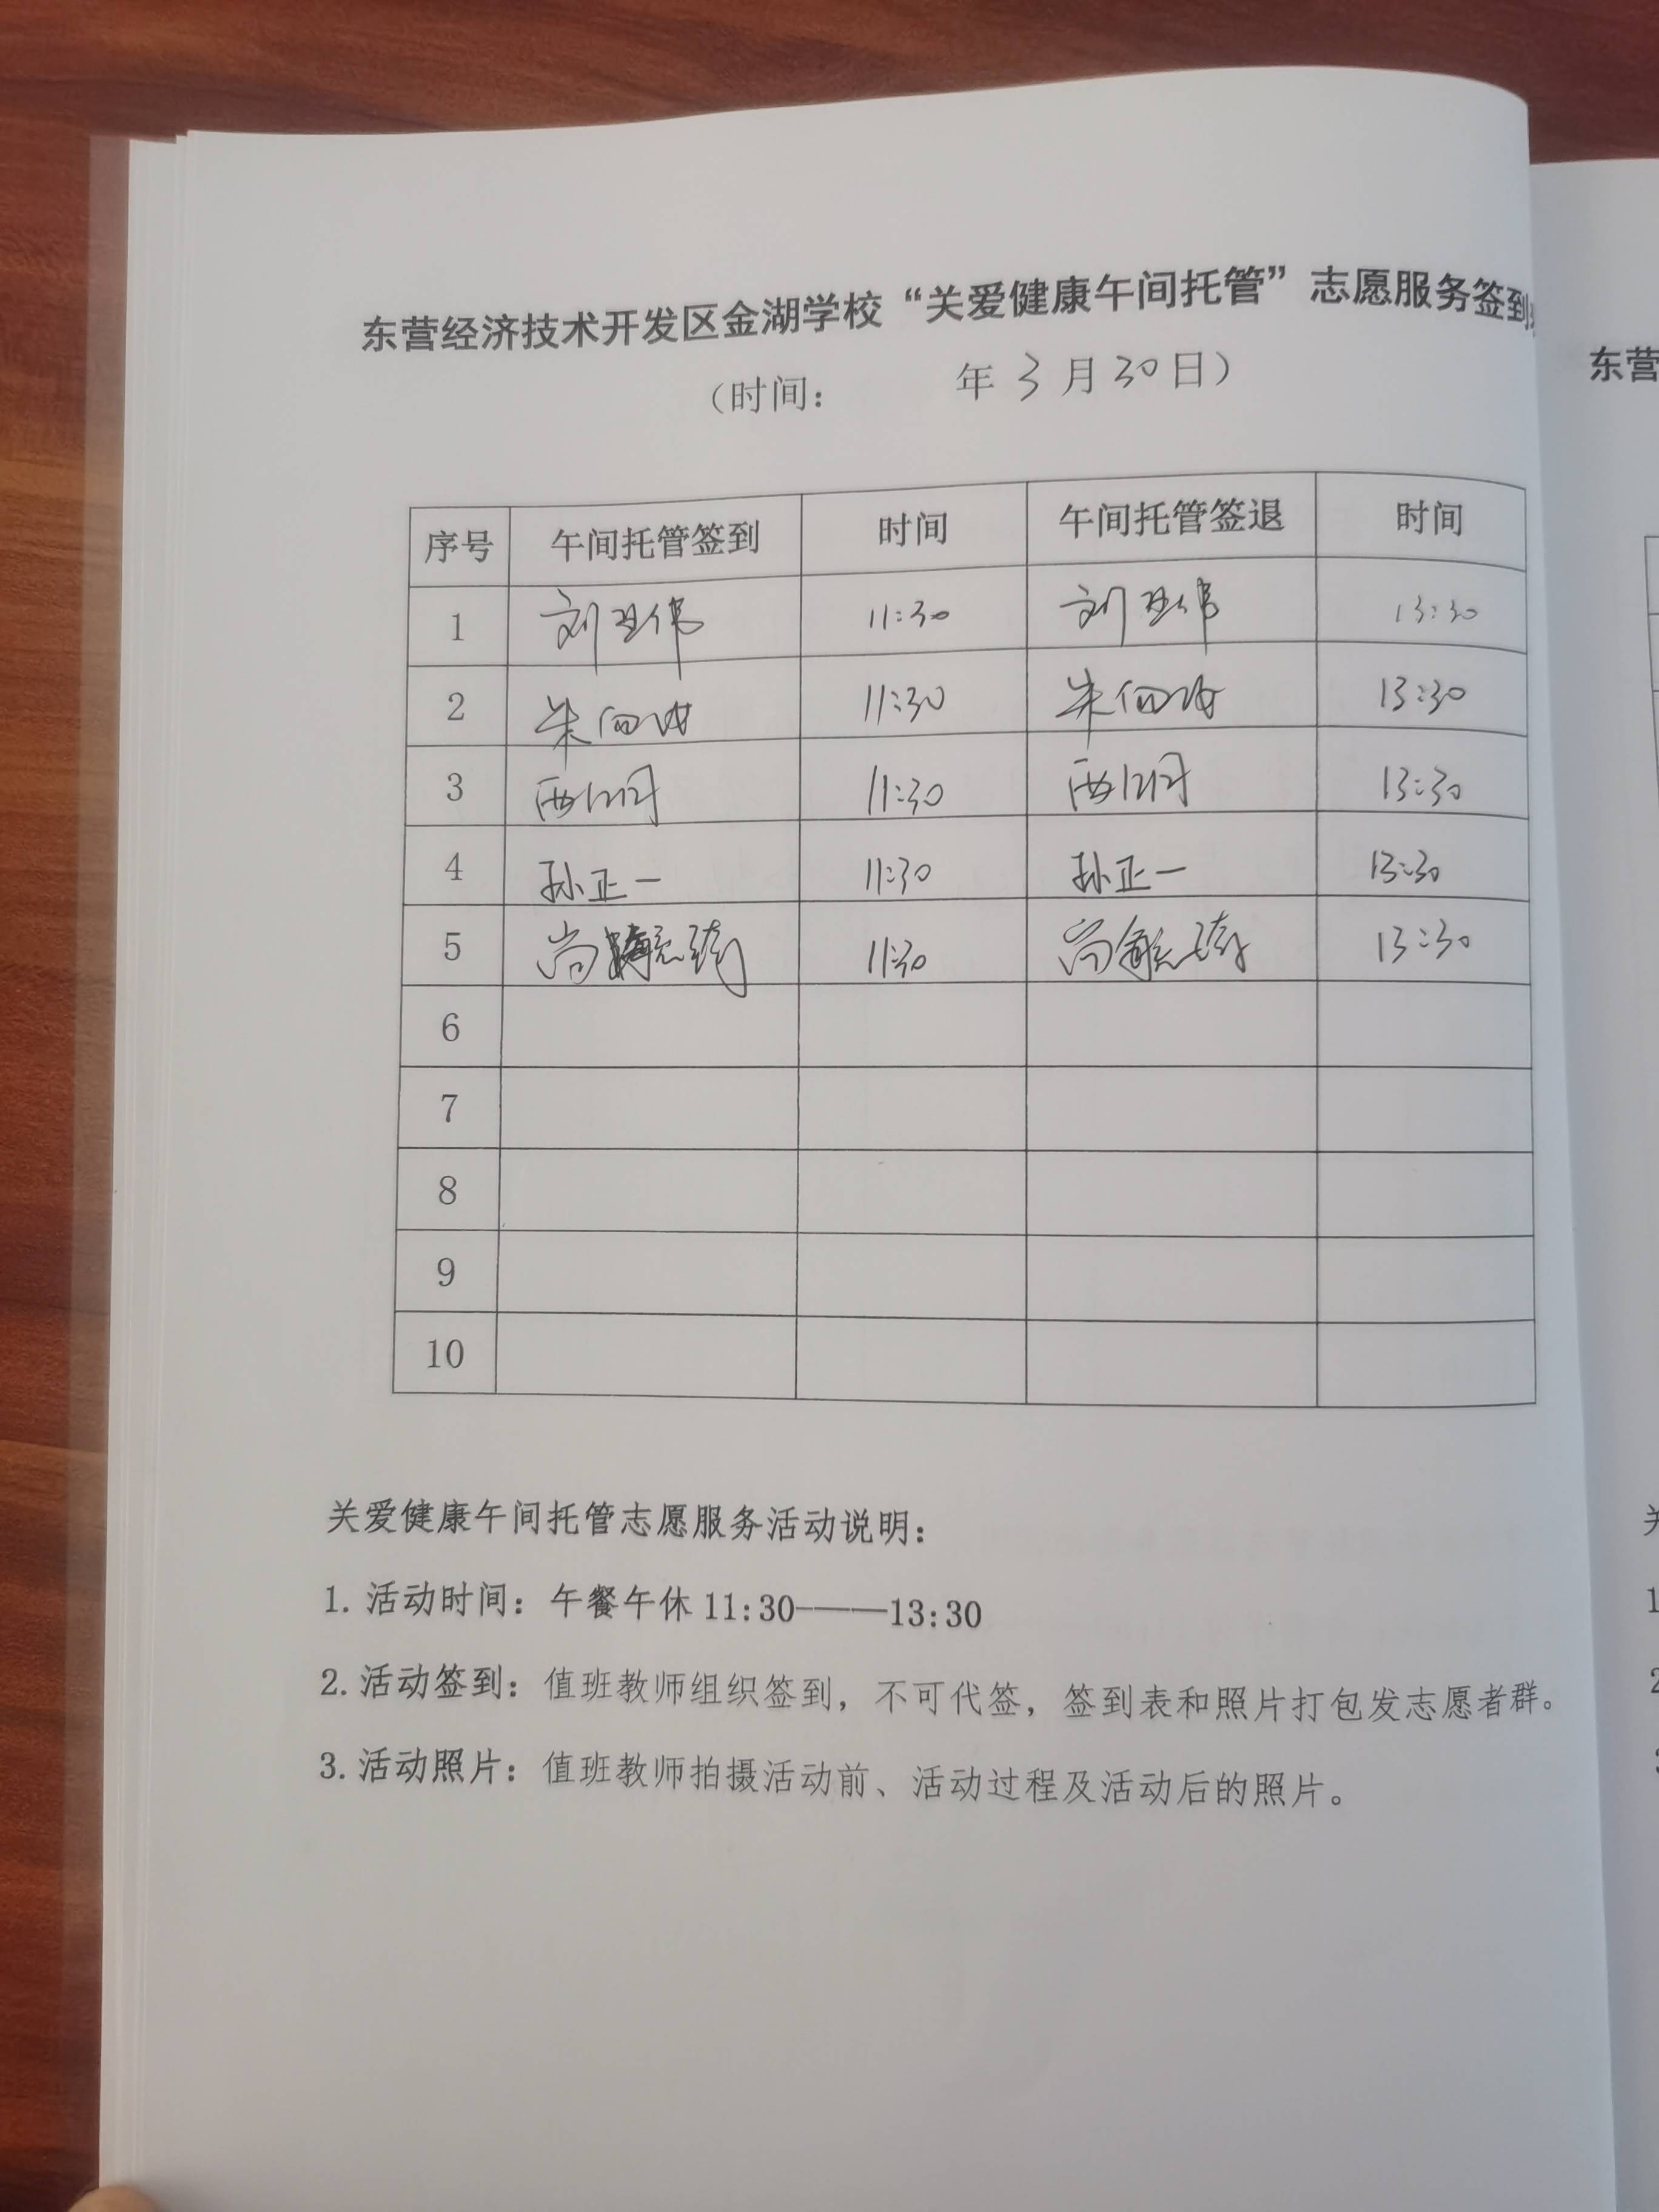 东营经济技术开发区金湖学校“关爱健康午间托管”志愿服务签到
（时间： 年 3 月 30 日）
序号 午间托管签到 时间 午间托管签退 时间
1 刘 伟 11:30 刘 伟 13:30
2 朱 11:30 朱 13:30
3 11:30 13:30
4 孙正一 11:30 孙正一 13:30
5 尚 11:30 尚 13:30
6
7
8
9
10
关爱健康午间托管志愿服务活动说明：
1. 活动时间：午餐午休 11:30-———13:30
2. 活动签到：值班教师组织签到，不可代签，签到表和照片打包发志愿者群。
3. 活动照片：值班教师拍摄活动前、活动过程及活动后的照片。
东营
关
1
2